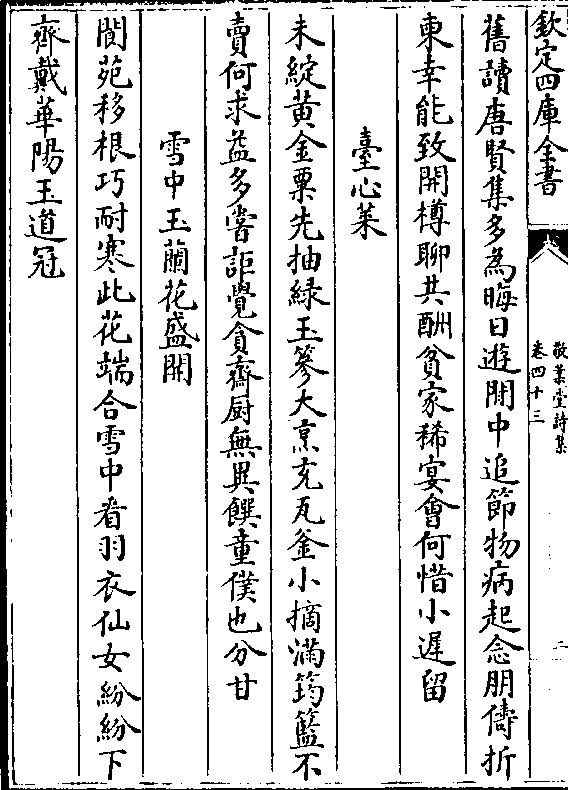 欽定四庫全書
敬業堂詩集
卷四十三
二
舊讀唐賢集多為晦日遊閒中追節物病起念朋儔折
柬幸能致開樽聊共酬貧家稀宴會何惜小遲留
臺心菜
未綻黃金粟先抽綠玉篸大烹充瓦釜小摘滿筠籃不
賣何求益多嘗詎覺貪齋厨無異饌童僕也分甘
雪中玉蘭花盛開
閬苑移根巧耐寒此花端合雪中看羽衣仙女紛紛下
齊戴華陽玉道冠